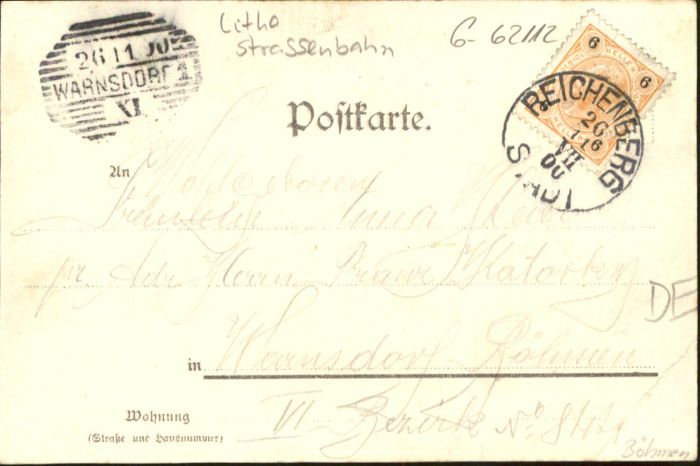 Litho
Strassenbahn
G-62112
26 11 00
WARNSDORF 1
XI
6 6
REICHENBERG
26
VII
00
STADT
Postkarte.
An
Wohlgeboren
Fräulein Anna
pr. Adr. Herrn Franz
DE
in Warnsdorf Böhmen
Wohnung VI Bezirk No
(Straße und Hausnummer)
Böhmen